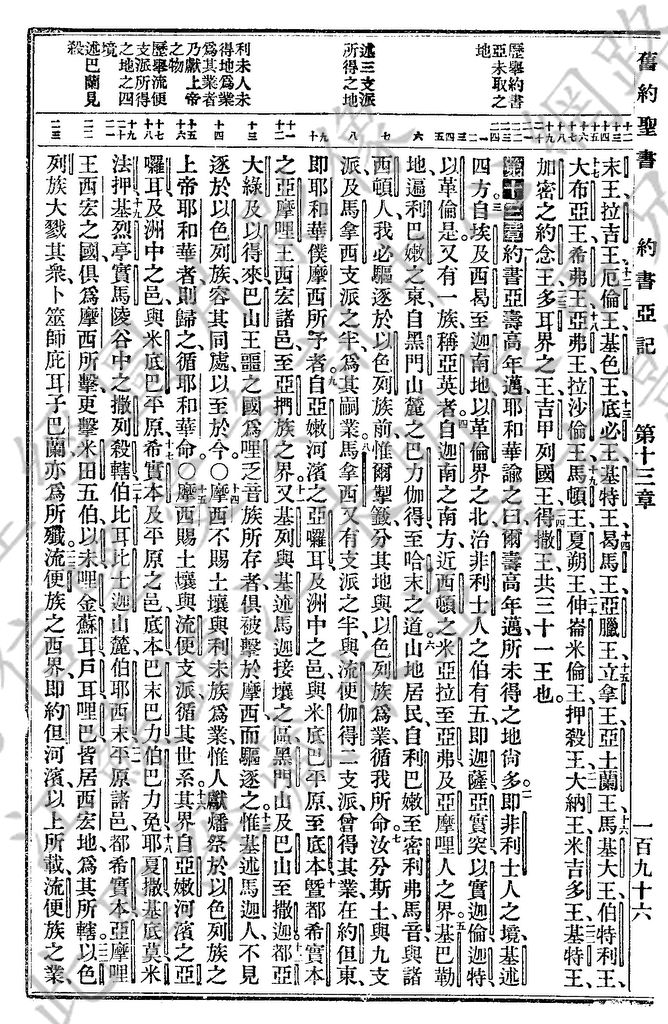 舊約聖書 約書亞記 第十三章 一百九十六
末王、拉吉王、厄倫王、基色王、底必王、基特王、曷馬王、亞臘王、立拿王、亞土蘭王、馬基大王、伯特利王、
大布亞王、希弗王、亞弗王、拉沙倫王、馬頓王、夏朔王、伸崙米倫王、押殺王、大納王、米吉多王、基特王、
加密之約念王、多耳界之王、吉甲列國王、得撒王、共三十一王也。
第十三章 約書亞壽高年邁、耶和華諭之曰、爾壽高年邁、所未得之地尙多、即非利士人之境、基述
四方、自埃及西曷至迦南地、以革倫界之北、治非利士人之伯有五、即迦薩、亞實突、以實迦倫、迦特、
以革倫是、又有一族稱亞英者、自迦南之南方、近西頓之米亞拉、至亞弗、及亞摩哩人之界、基巴勒
地、遍利巴嫩之東、自黑門山麓之巴力伽得、至哈末之道、山地居民、自利巴嫩至密利弗馬音、與諸
西頓人、我必驅逐於以色列族前、惟爾掣籤分其地、與以色列族爲業、循我所命、汝分斯土、與九支
派、及馬拿西支派之半、爲其嗣業、馬拿西又有支派之半、與流便伽得二支派、曾得其業、在約但東、
即耶和華僕摩西所予者、自亞嫩河濱之亞囉耳、及洲中之邑、與米底巴平原、至底本、曁都希實本
之亞摩哩王西宏諸邑、至亞捫族之界、又基列與基述馬迦接壤之區、黑門山、及巴山、至撒迦、都亞
大綠及以得來、巴山王噩之國、爲哩乏音族所存者、俱被擊於摩西而驅逐之、惟基述馬迦人、不見
逐於以色列族、容其同處、以至於今、○摩西不賜土壤與利未族爲業、惟人獻燔祭於以色列族之
上帝耶和華者、則歸之、循耶和華命、○摩西賜土壤與流便支派、循其世系、其界自亞嫩河濱之亞
囉耳、及洲中之邑、與米底巴平原、希實本、及平原之邑、底本、巴末巴力、伯巴力免、耶夏撒、基底莫、米
法押、基烈亭、實馬、陵谷中之撒列殺轄、伯比耳、比士迦山麓、伯耶西末、平原諸邑、都希實本、亞摩哩
王西宏之國、俱爲摩西所擊、更擊米田五伯、以未、哩金、蘇耳、戶耳、哩巴、皆居西宏地、爲其所轄、以色
列族大戮其衆、卜筮師庇耳子巴蘭、亦爲所殲、流便族之西界、即約但河濱、以上所載、流便族之業、
歷舉約書
亞未取之
地
述三支派
所得之地
利未人未
得地爲業
爲其業者
乃獻上帝
之物
歷舉流便
支派所得
之地之四
境
述巴蘭見
殺